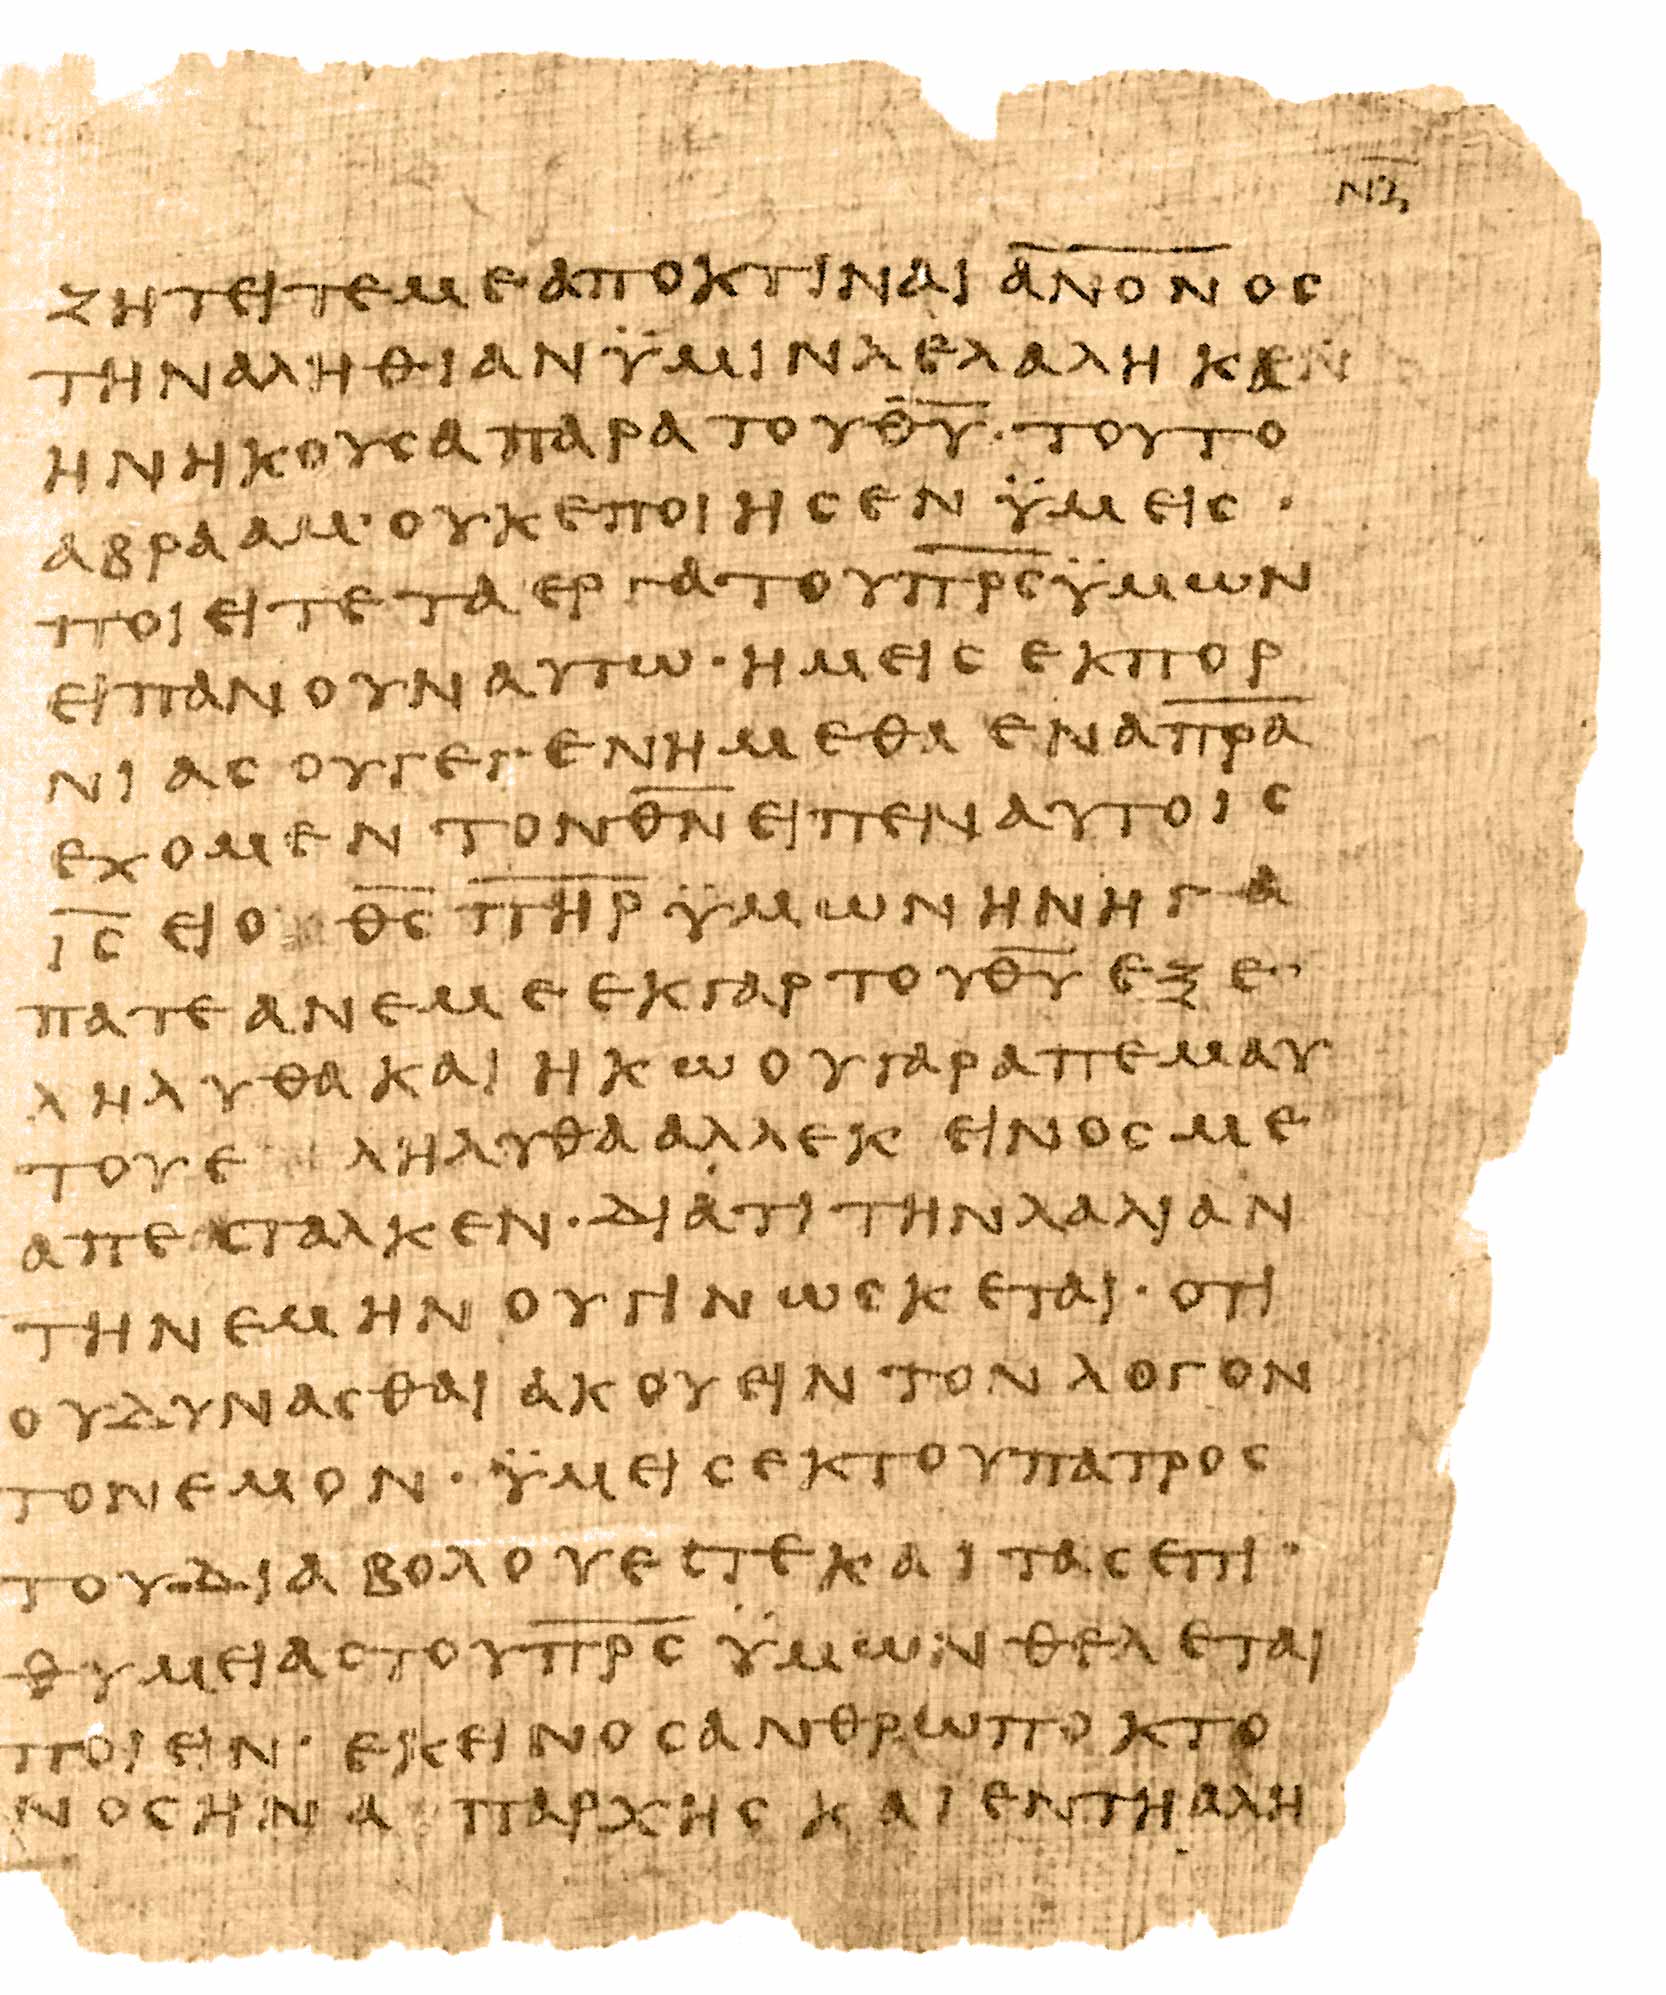 ΝΖ
ΖΗΤΕΙΤΕΜΕΑΠΟΚΤΙΝΑΙΑ̅Ν̅Ο̅Ν̅ΟϹ
ΤΗΝΑΛΗΘΙΑΝΫΜΙΝΛΕΛΑΛΗΚΕΝ
ΗΝΗΚΟΥϹΑΠΑΡΑΤΟΥΘ̅Υ̅·ΤΟΥΤΟ
ΑΒΡΑΑΜ·ΟΥΚΕΠΟΙΗϹΕΝΫΜΕΙϹ·
ΠΟΙΕΙΤΕΤΑΕΡΓΑΤΟΥΠ̅Ρ̅Ϲ̅ΫΜΩΝ
ΕΙΠΑΝΟΥΝΑΥΤΩ·ΗΜΕΙϹΕΚΠΟΡ
ΝΙΑϹΟΥΓΕΓΕΝΗΜΕΘΑΕΝΑΠ̅Ρ̅Α̅
ΕΧΟΜΕΝΤΟΝΘ̅Ν̅ΕΙΠΕΝΑΥΤΟΙϹ
Ι̅Ϲ̅ΕΙΟΘ̅Ϲ̅Π̅Η̅Ρ̅ΫΜΩΝΗΝΗΓΑ
ΠΑΤΕΑΝΕΜΕΕΚΓΑΡΤΟΥΘ̅Υ̅ΕΞΕ
ΛΗΛΥΘΑΚΑΙΗΚΩΟΥΓΑΡΑΠΕΜΑΥ
ΤΟΥΕΛΗΛΥΘΑΑΛΛΕΚΕΙΝΟϹΜΕ
ΑΠΕϹΤΑΛΚΕΝ·ΔΙΑΤΙΤΗΝΛΑΛΙΑΝ
ΤΗΝΕΜΗΝΟΥΓΙΝΩϹΚΕΤΑΙ·ΟΤΙ
ΟΥΔΥΝΑϹΘΑΙΑΚΟΥΕΙΝΤΟΝΛΟΓΟΝ
ΤΟΝΕΜΟΝ·ΫΜΕΙϹΕΚΤΟΥΠΑΤΡΟϹ
ΤΟΥΔΙΑΒΟΛΟΥΕϹΤΕΚΑΙΤΑϹΕΠΙ
ΘΥΜΕΙΑϹΤΟΥΠ̅Ρ̅Ϲ̅ΫΜΩΝΘΕΛΕΤΑΙ
ΠΟΙΕΙΝ·ΕΚΕΙΝΟϹΑΝΘΡΩΠΟΚΤΟ
ΝΟϹΗΝΑΠΑΡΧΗϹΚΑΙΕΝΤΗΑΛΗ